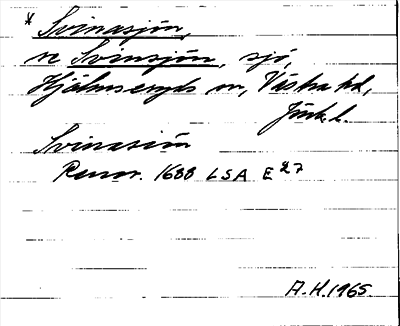 * Svinasjön,
se Svinsjön, sjö,
Hjälmseryds sn, Västra hd,
Jönk. l.
Svinasiön
Rannr. 1688 LSA E 27
A.H. 1965.